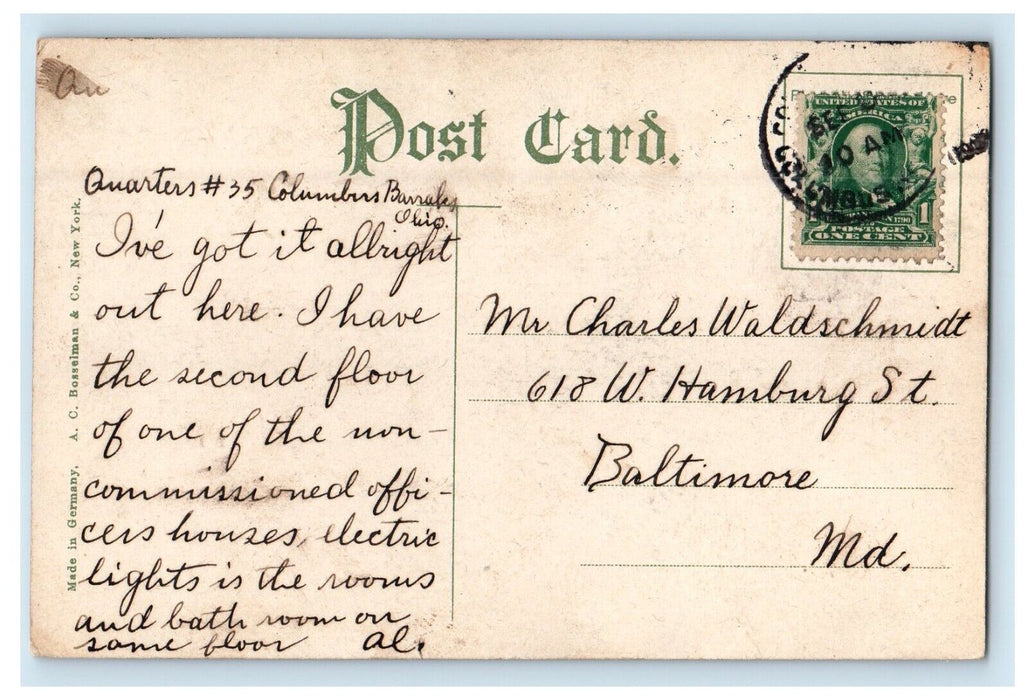 Post Card.
UNITED STATES OF
AMERICA
10 AM
1
POSTAGE
ONE CENT
Quarters #35 Columbus Barracks
Ohio.
I've got it allright
out here. I have
the second floor
of one of the non-
commissioned offi-
cers houses, electric
lights is the rooms
and bath room on
same floor Al.
Mr Charles Waldschmidt
618 W. Hamburg St.
Baltimore
Md.
Made in Germany. A. C. Bosselman & Co., New York.